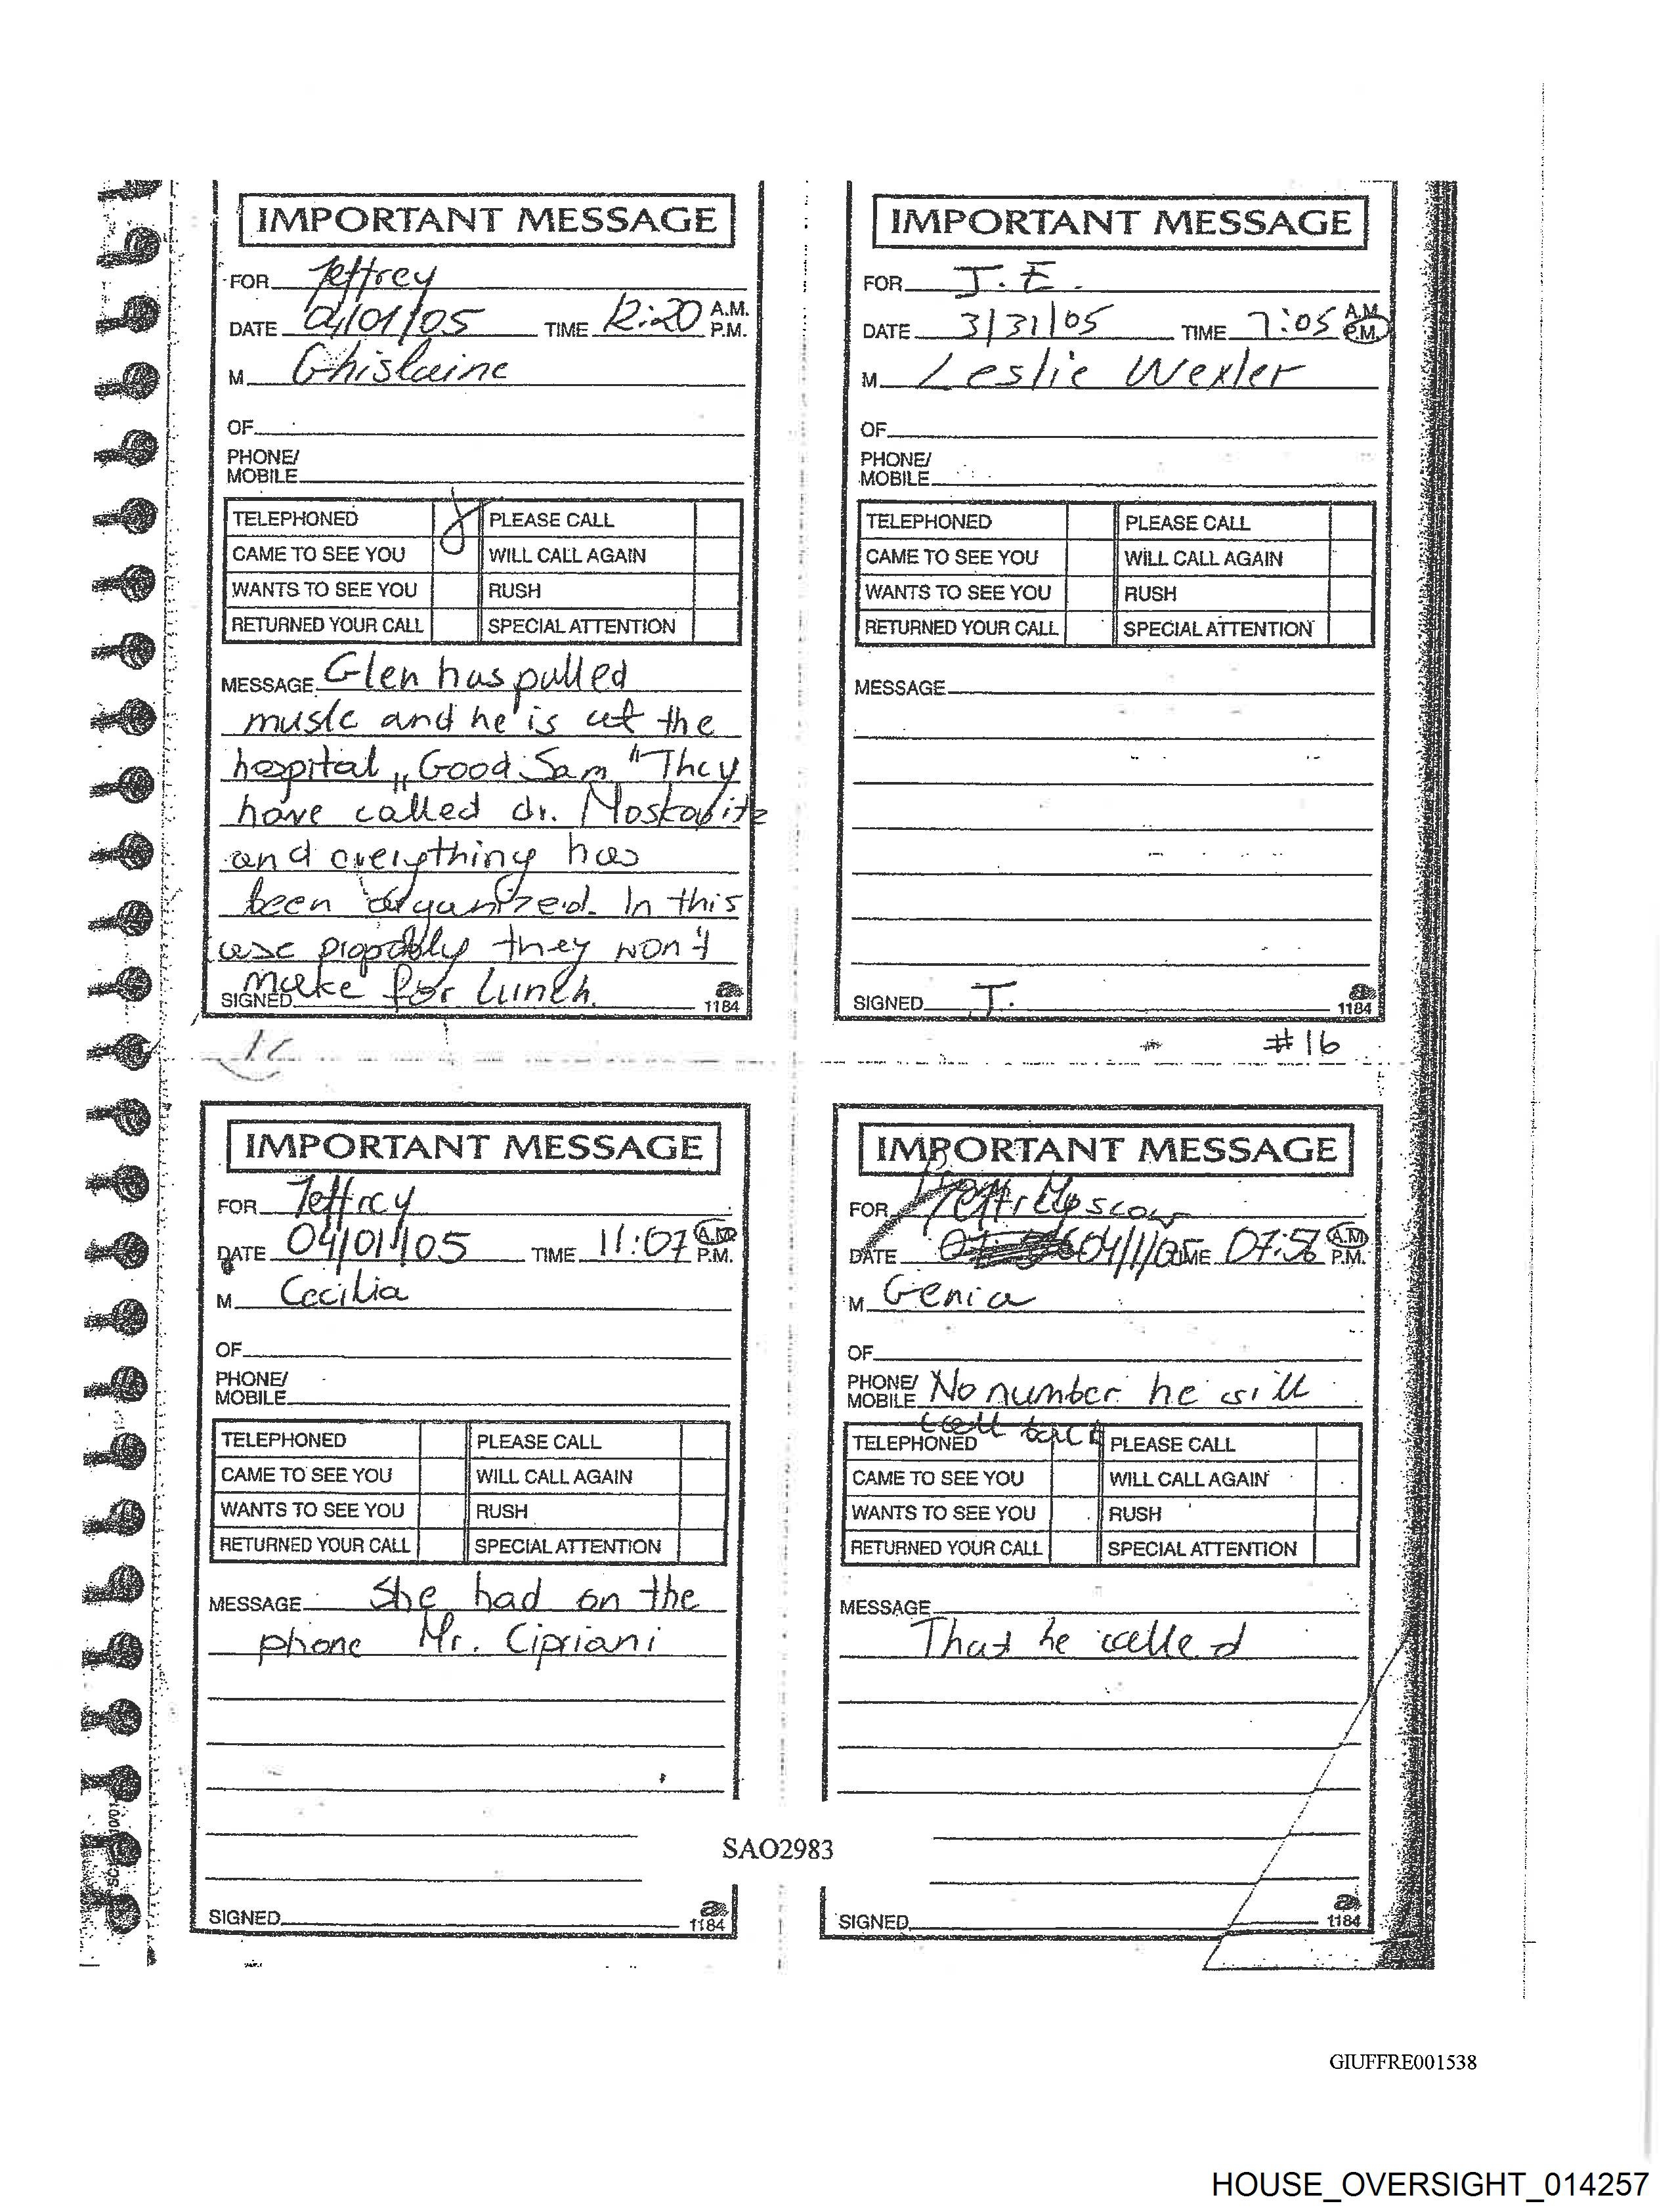 IMPORTANT MESSAGE
FOR Jeffrey
DATE 04/01/05 TIME 12:20 A.M. P.M.
M Ghislaine
OF
PHONE/
MOBILE
TELEPHONED PLEASE CALL
CAME TO SEE YOU WILL CALL AGAIN
WANTS TO SEE YOU RUSH
RETURNED YOUR CALL SPECIAL ATTENTION
MESSAGE Glen has pulled
muslc and he is at the
hospital „Good Sam" They
have called dr. Moskovitz
and everything has
been organized. In this
case propably they won't
make for lunch.
SIGNED
1184
IMPORTANT MESSAGE
FOR J.E.
DATE 3/31/05 TIME 7:05 A.M. P.M.
M Leslie Wexler
OF
PHONE/
MOBILE
TELEPHONED PLEASE CALL
CAME TO SEE YOU WILL CALL AGAIN
WANTS TO SEE YOU RUSH
RETURNED YOUR CALL SPECIAL ATTENTION
MESSAGE
SIGNED J.
1184
#16
IMPORTANT MESSAGE
FOR Jeffrey
DATE 04/01/05 TIME 11:07 A.M. P.M.
M Cecilia
OF
PHONE/
MOBILE
TELEPHONED PLEASE CALL
CAME TO SEE YOU WILL CALL AGAIN
WANTS TO SEE YOU RUSH
RETURNED YOUR CALL SPECIAL ATTENTION
MESSAGE She had on the
phone Mr. Cipriani
SIGNED
1184
IMPORTANT MESSAGE
FOR
DATE 04/1/05 TIME 07:56 A.M. P.M.
M Genia
OF
PHONE/
MOBILE No number he will
call back
TELEPHONED PLEASE CALL
CAME TO SEE YOU WILL CALL AGAIN
WANTS TO SEE YOU RUSH
RETURNED YOUR CALL SPECIAL ATTENTION
MESSAGE
That he called
SIGNED
1184
SAO2983
GIUFFRE001538
HOUSE_OVERSIGHT_014257